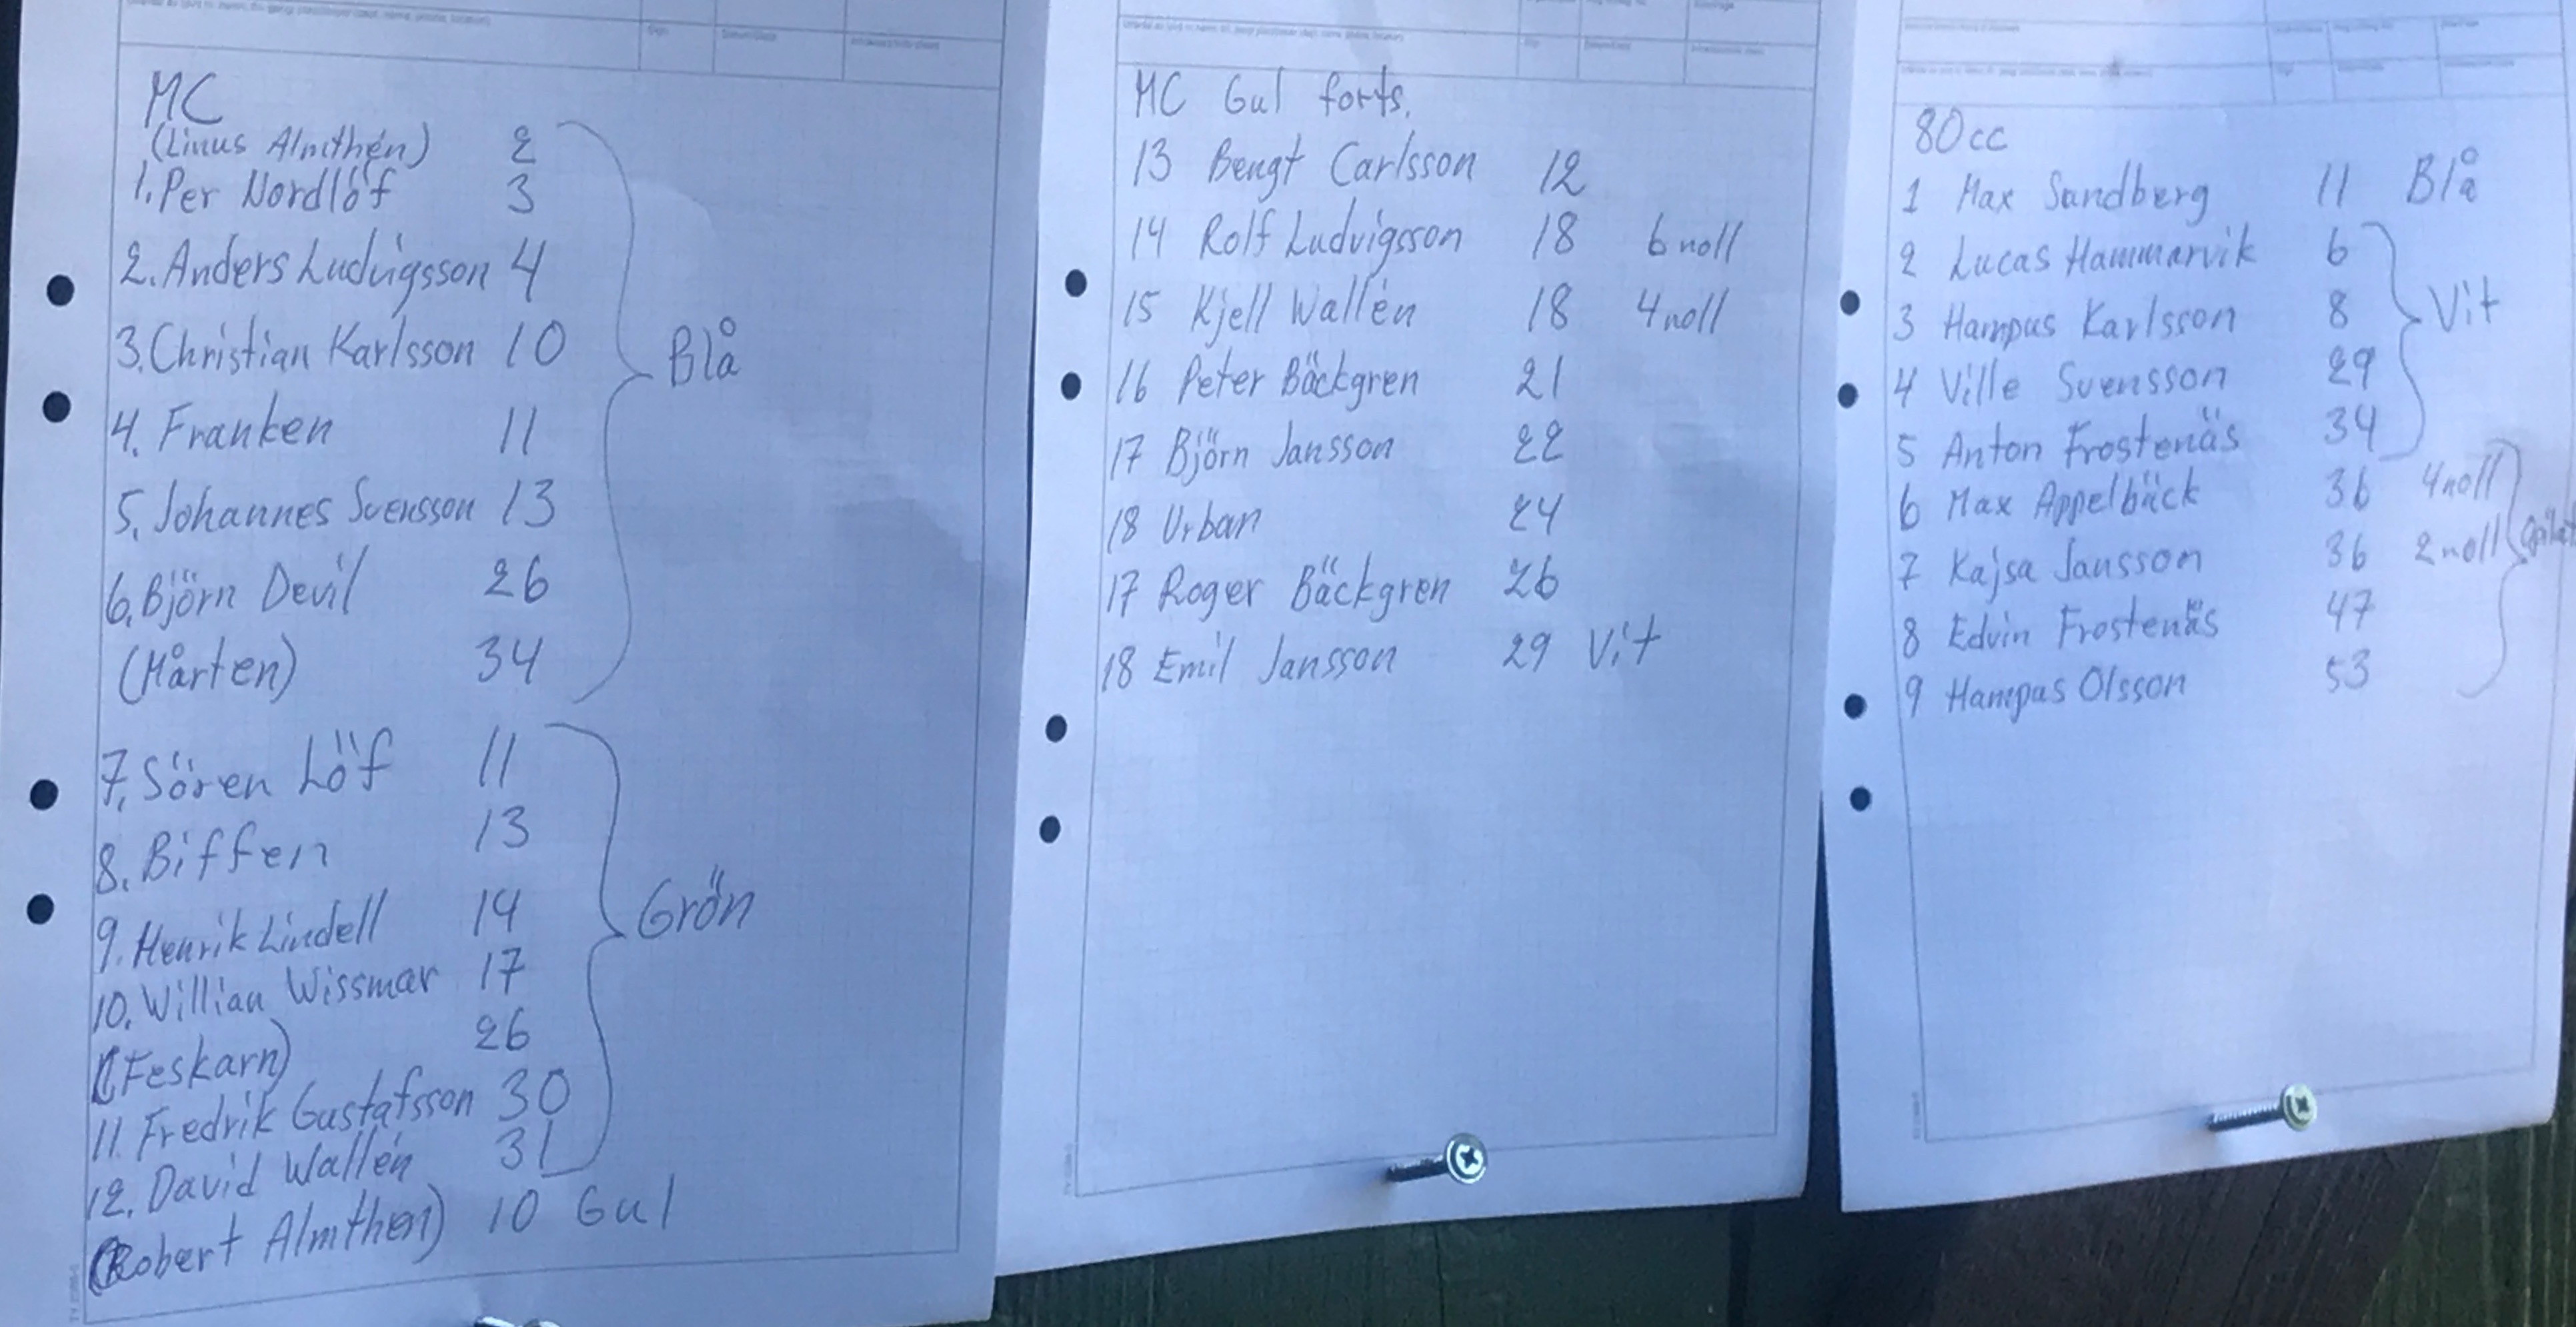 MC
(Linus Almthén) 2
1. Per Nordlöf 3
2. Anders Ludvigsson 4
3. Christian Karlsson 10
Blå
4. Franken 11
5. Johannes Svensson 13
6. Björn Devil 26
(Mårten) 34
7. Sören Löf 11
8. Biffen 13
9. Henrik Lindell 14
Grön
10. Willian Wissmar 17
(Feskarn) 26
11. Fredrik Gustafsson 30
12. David Wallén 31
(Robert Almthen) 10 Gul
MC Gul forts.
13 Bengt Carlsson 12
14 Rolf Ludvigsson 18 6 noll
15 Kjell Wallén 18 4 noll
16 Peter Bäckgren 21
17 Björn Jansson 22
18 Urban 24
17 Roger Bäckgren 26
18 Emil Jansson 29 Vit
80cc
1 Max Sandberg 11 Blå
2 Lucas Hammarvik 6
3 Hampus Karlsson 8 Vit
4 Ville Svensson 29
5 Anton Frostenäs 34
6 Max Appelbäck 36 4 noll
7 Kajsa Jansson 36 2 noll
8 Edvin Frostenäs 47
9 Hampus Olsson 53